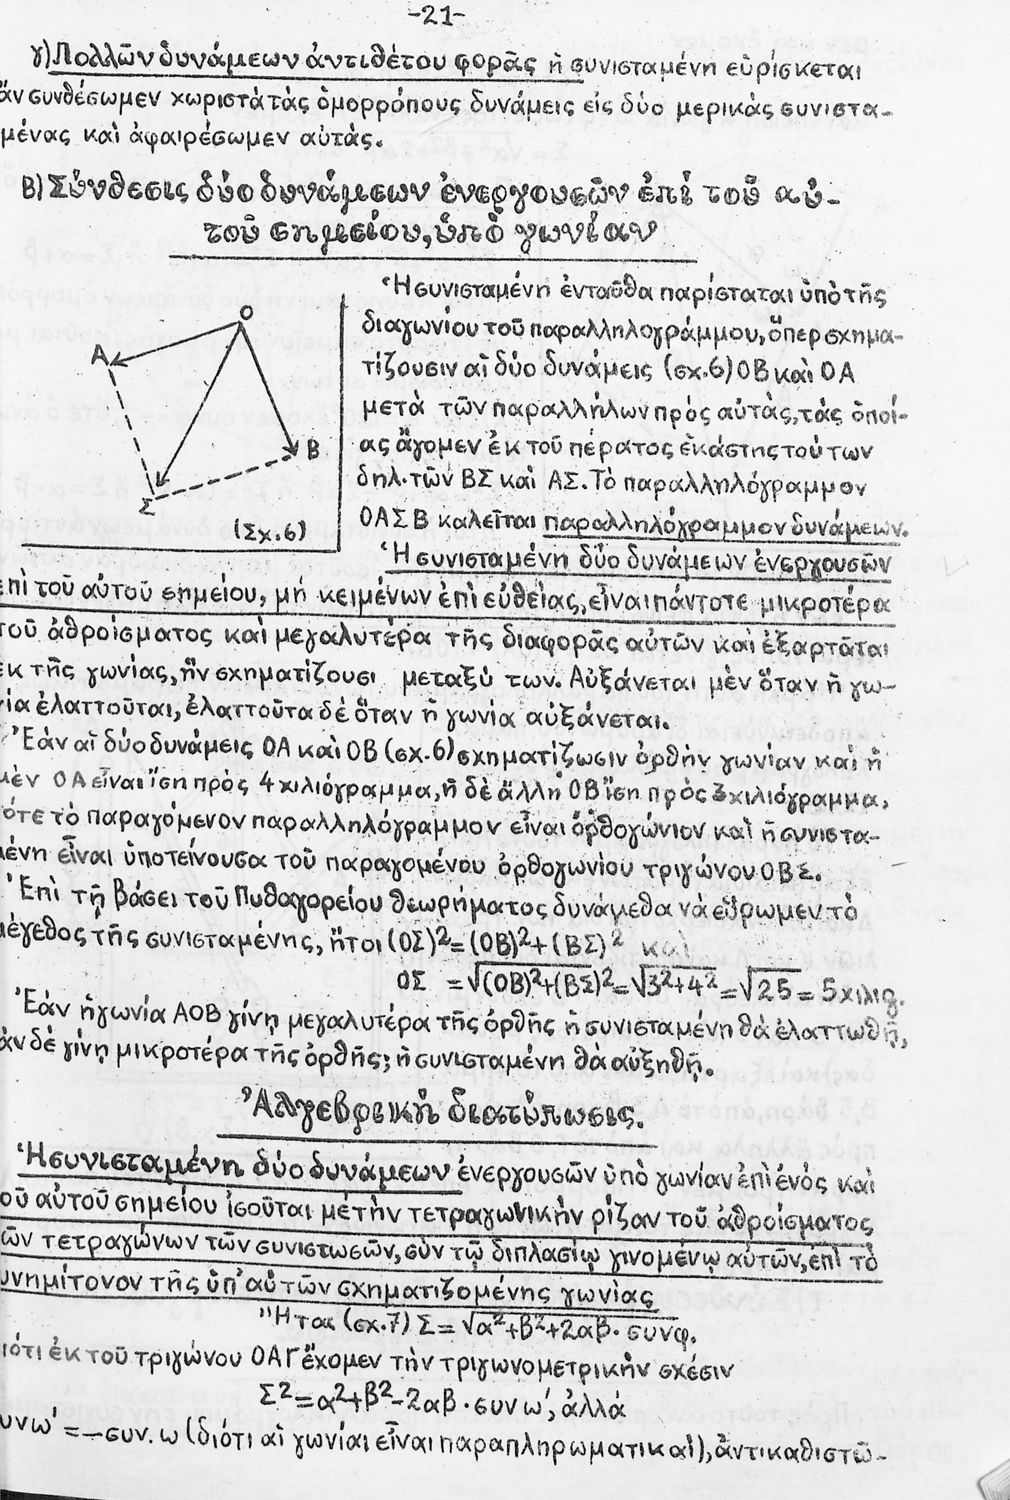 -21-
γ) Πολλῶν δυνάμεων ἀντιθέτου φορᾶς ἡ συνισταμένη εὑρίσκεται
ἂν συνθέσωμεν χωριστὰ τὰς ὁμορρόπους δυνάμεις εἰς δύο μερικὰς συνιστα-
μένας καὶ ἀφαιρέσωμεν αὐτάς.
Β) Σύνθεσις δύο δυνάμεων ἐνεργουσῶν ἐπὶ τοῦ αὐ-
τοῦ σημείου, ὑπὸ γωνίαν
Ο
Α
Β
Σ
(Σχ.6)
Ἡ συνισταμένη ἐνταῦθα παρίσταται ὑπὸ τῆς
διαγωνίου τοῦ παραλληλογράμμου, ὅπερ σχημα-
τίζουσιν αἱ δύο δυνάμεις (σχ.6) ΟΒ καὶ ΟΑ
μετὰ τῶν παραλλήλων πρὸς αὐτὰς, τὰς ὁποί-
ας ἄγομεν ἐκ τοῦ πέρατος ἑκάστης τούτων
δηλ. τῶν ΒΣ καὶ ΑΣ. Τὸ παραλληλόγραμμον
ΟΑΣΒ καλεῖται παραλληλόγραμμον δυνάμεων.
Ἡ συνισταμένη δύο δυνάμεων ἐνεργουσῶν
ἐπὶ τοῦ αὐτοῦ σημείου, μή κειμένων ἐπὶ εὐθείας, εἶναι πάντοτε μικροτέρα
τοῦ ἀθροίσματος καὶ μεγαλυτέρα τῆς διαφορᾶς αὐτῶν καὶ ἐξαρτᾶται
ἐκ τῆς γωνίας, ἣν σχηματίζουσι μεταξύ των. Αὐξάνεται μὲν ὅταν ἡ γω-
νία ἐλαττοῦται, ἐλαττοῦτα δέ ὅταν ἡ γωνία αὐξάνεται.
Ἐάν αἱ δύο δυνάμεις ΟΑ καὶ ΟΒ (σχ.6) σχηματίζωσιν ὀρθὴν γωνίαν καὶ ἡ
μὲν ΟΑ εἶναι ἴση πρὸς 4 χιλιόγραμμα, ἡ δὲ ἄλλη ΟΒ ἴση πρὸς 3 χιλιόγραμμα,
τότε τὸ παραγόμενον παραλληλόγραμμον εἶναι ὀρθογώνιον καὶ ἡ συνιστα-
μένη εἶναι ὑποτείνουσα τοῦ παραγομένου ὀρθογωνίου τριγώνου ΟΒΣ.
Ἐπὶ τῇ βάσει τοῦ Πυθαγορείου θεωρήματος δυνάμεθα νὰ εὕρωμεν τὸ
μέγεθος τῆς συνισταμένης, ἤτοι (ΟΣ)²=(ΟΒ)²+(ΒΣ)² καὶ
ΟΣ =√(ΟΒ)²+(ΒΣ)²=√3²+4²=√25=5 χιλιγ.
Ἐάν ἡ γωνία ΑΟΒ γίνῃ μεγαλυτέρα τῆς ὀρθῆς ἡ συνισταμένη θὰ ἐλαττωθῇ,
ἂν δὲ γίνῃ μικροτέρα τῆς ὀρθῆς; ἡ συνισταμένη θὰ αὐξηθῇ.
Ἀλγεβρικὴ διατύπωσις.
Ἡ συνισταμένη δύο δυνάμεων ἐνεργουσῶν ὑπὸ γωνίαν ἐπὶ ἑνός καὶ
τοῦ αὐτοῦ σημείου ἰσοῦται μέ τὴν τετραγωνικὴν ρίζαν τοῦ ἀθροίσματος
τῶν τετραγώνων τῶν συνιστωσῶν, σὺν τῷ διπλασίῳ γινομένῳ αὐτῶν, ἐπὶ τὸ
συνημίτονον τῆς ὑπ' αὐτῶν σχηματιζομένης γωνίας
Ἤτοι (σχ.7) Σ=√α²+β²+2αβ·συνφ.
διότι ἐκ τοῦ τριγώνου ΟΑΓ ἔχομεν τὴν τριγωνομετρικὴν σχέσιν
Σ²=α²+β²-2αβ·συν ω', ἀλλά
συνω' =-συν. ω (διότι αἱ γωνίαι εἶναι παραπληρωματικαί), ἀντικαθιστῶ-